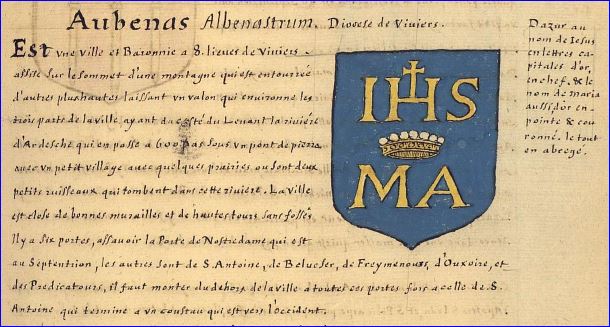 Aubenas Albenastrum. Diocese de Viviers.
Est vne ville et Baronnie a 8. lieues de Viviers
assise sur le sommet d'une montagne qui est entourée
d'autres plus hautes laissant vn valon qui environne les
trois parts de la ville ayant du costé du Leuant la riviere
d'Ardesche qui en passe a 600 pas sous vn pont de pierre
auec vn petit village auec quelques prairies ou sont deux
petits ruisseaux qui tombent dans cette riviere. La ville
est close de bonnes murailles et de hautes tours sans fossés
Il y a six portes, assauoir la Porte de Nostredame qui est
au Septentrion, les autres sont de S. Antoine, de Belueser, de Freymenous, d'Ouxoire, et
des Predicatours, il faut monter du dehors de la ville a toutes ces portes fors a celle de S.
Antoine qui termine a vn coustau qui est vers l'occident.
IHS
MA
D'azur au
nom de Iesus
en lettres ca-
pitales d'or,
en chef, & le
nom de maria
aussi d'or en
pointe & cou
ronné. le tout
en abregé.